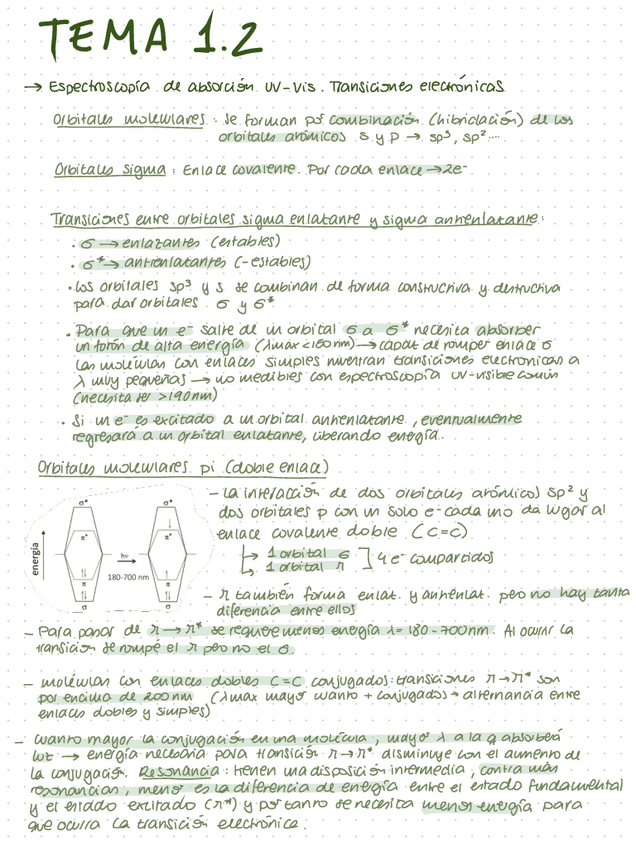 TEMA 1.2
→ Espectroscopía de absorción UV-Vis. Transiciones electrónicas
Orbitales moleculares: Se forman por combinación (hibridación) de los
orbitales atómicos s y p → sp³, sp²....
Orbitales sigma: Enlace covalente. Por cada enlace → 2e⁻
Transiciones entre orbitales sigma enlazante y sigma antienlazante:
· σ → enlazantes (estables)
· σ* → antienlazantes (-estables)
· Los orbitales sp³ y s se combinan de forma constructiva y destructiva
para dar orbitales σ y σ*
· Para que un e⁻ salte de un orbital σ a σ* necesita absorber
un fotón de alta energía (λmax<180nm) → capaz de romper enlace σ
Las moléculas con enlaces simples muestran transiciones electrónicas a
λ muy pequeñas → no medibles con espectroscopía UV-visible común
(necesita ser >190nm)
· Si un e⁻ es excitado a un orbital antienlazante, eventualmente
regresará a un orbital enlazante, liberando energía.
Orbitales moleculares pi (doble enlace)
- La interacción de dos orbitales atómicos sp² y
dos orbitales p con un solo e⁻ cada uno da lugar al
enlace covalente doble (C=C)
1 orbital σ
1 orbital π ] 4e⁻ compartidos
energía
σ* σ*
π* π*
hν
180-700 nm
π π
σ σ
- π también forma enlat. y antienlat. pero no hay tanta
diferencia entre ellos
- Para pasar de π→π* se requiere menos energía λ=180-700nm. Al ocurrir la
transición se rompe el π pero no el σ.
- moléculas con enlaces dobles C=C conjugados: transiciones π→π* son
por encima de 200nm (λmax mayor cuanto + conjugados → alternancia entre
enlaces dobles y simples)
- Cuanto mayor la conjugación en una molécula, mayor λ a la q absorberá
luz → energía necesaria para transición π→π* disminuye con el aumento de
la conjugación. Resonancia: tienen una disposición intermedia, contra más
resonancian, menor es la diferencia de energía entre el estado fundamental
y el estado excitado (π*) y por tanto se necesita menos energía para
que ocurra la transición electrónica.